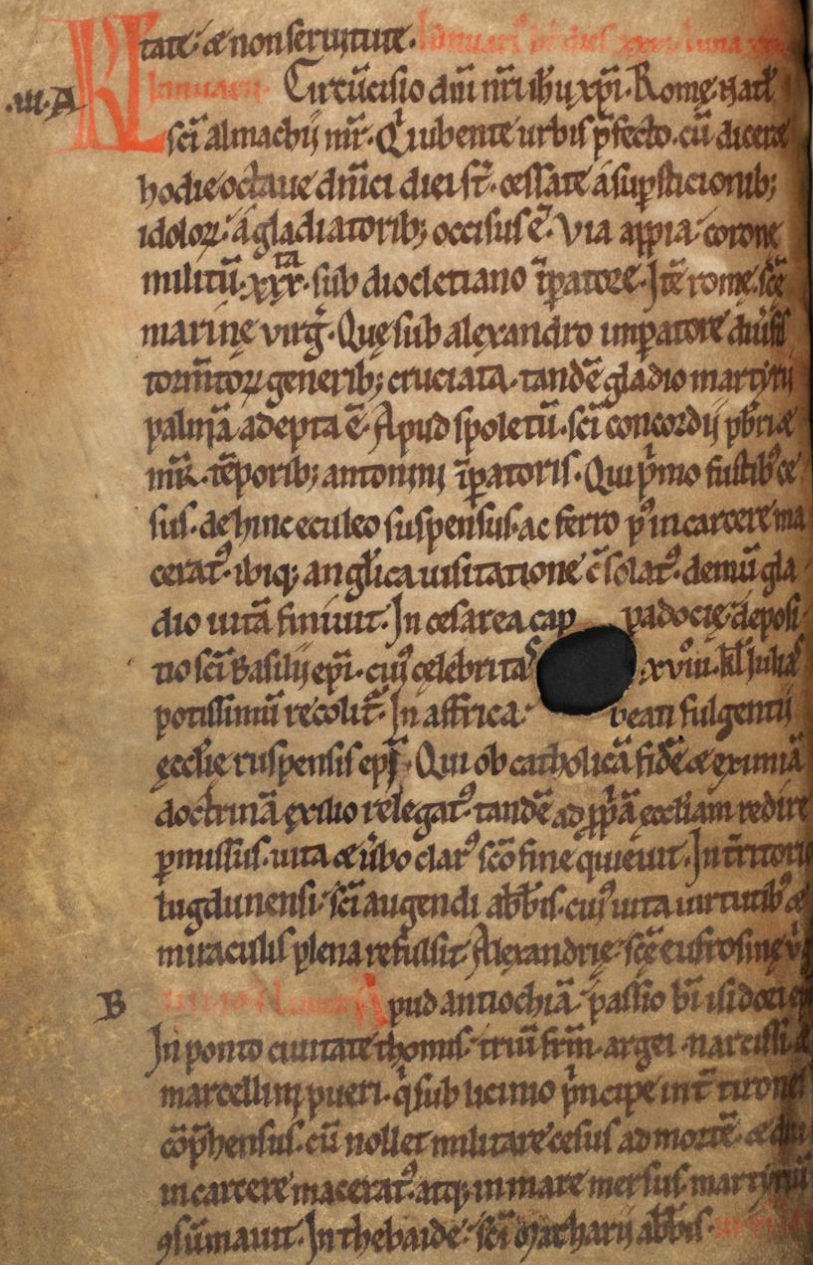 tate. & non seruitute. Januari' h't dies xxxi. luna xxx.
.iii. A KL Januarii. Circu̅cisio dn̅i nr̅i ih̅u xp̅i. Rome̜ natl̅
sc̅i almachij mr̅. Qͥ iubente urbis p̅fecto. cu̅ diceret
hodie octaue dn̅ici diei st̅. cessate a sup̲sticionib;
idoloꝝ. a gladiatorib; occisus e̅. Via appia. corone̜
militu̅. xxxᵗᵃ. sub diocletiano i̅p̲atore. Ite̅ rome̜. sc̅e̜
marine̜ virg̅. Que̜ sub alexandro imp̲atore diu̅sis
torm̅toꝝ generib; cruciata. tande̅ gladio martyrij
palma̅ adepta e̅. Apud spoletu̅. sc̅i concordij pb̅ri &
mr̅. te̅porib; antonini i̅p̲atoris. Qui pͥmo fustib; ce
sus. dehinc eculeo suspensus. ac ferro pꝰ in carcere ma
ceratꝰ. ibiq; anglͥica uisitatione c̅solatꝰ. demu̅ gla
dio uita̅ finiuit. In cesarea cap padocie̜. deposi
tio sc̅i Basilij ep̅i. cuiꝰ ce̜lebritas .xviii. kl̅ Julias
potissimu̅ recolit̅. In affrica. beati fulgentij
e̜ccl̅ie ruspensis ep̅i. Qui ob catholica̅ fide̅ & e̜ximia̅
doctrina̅ e̜xilio relegatꝰ. tande̅ ad p̲p̲a̅ e̜ccl̅iam redire
p̲missus. uita & u̅bo clarꝰ sc̅o fine quieuit. In t̅ritorio
lugdunensi. sc̅i augendi abb̅is. cuiꝰ uita uirtutib; &
miraculis plena refulsit. Alexandrie̜. sc̅e̜ eufrosine̜ v̅
B Apud antiochia̅. passio b̅i isidori ep̅i
In ponto ciuitate thomis. triu̅ fr̅m. argei. narcissi. &
marcellini pueri. qͥ sub licinio pͥncipe int̅ tirones
co̅p̅hensus. cu̅ nollet militare cesus ad morte̅. & diu
in carcere maceratꝰ. atq; in mare mersus. martyriu̅
ꝯsu̅mauit. In thebaide. sc̅i Macharij abb̅is.